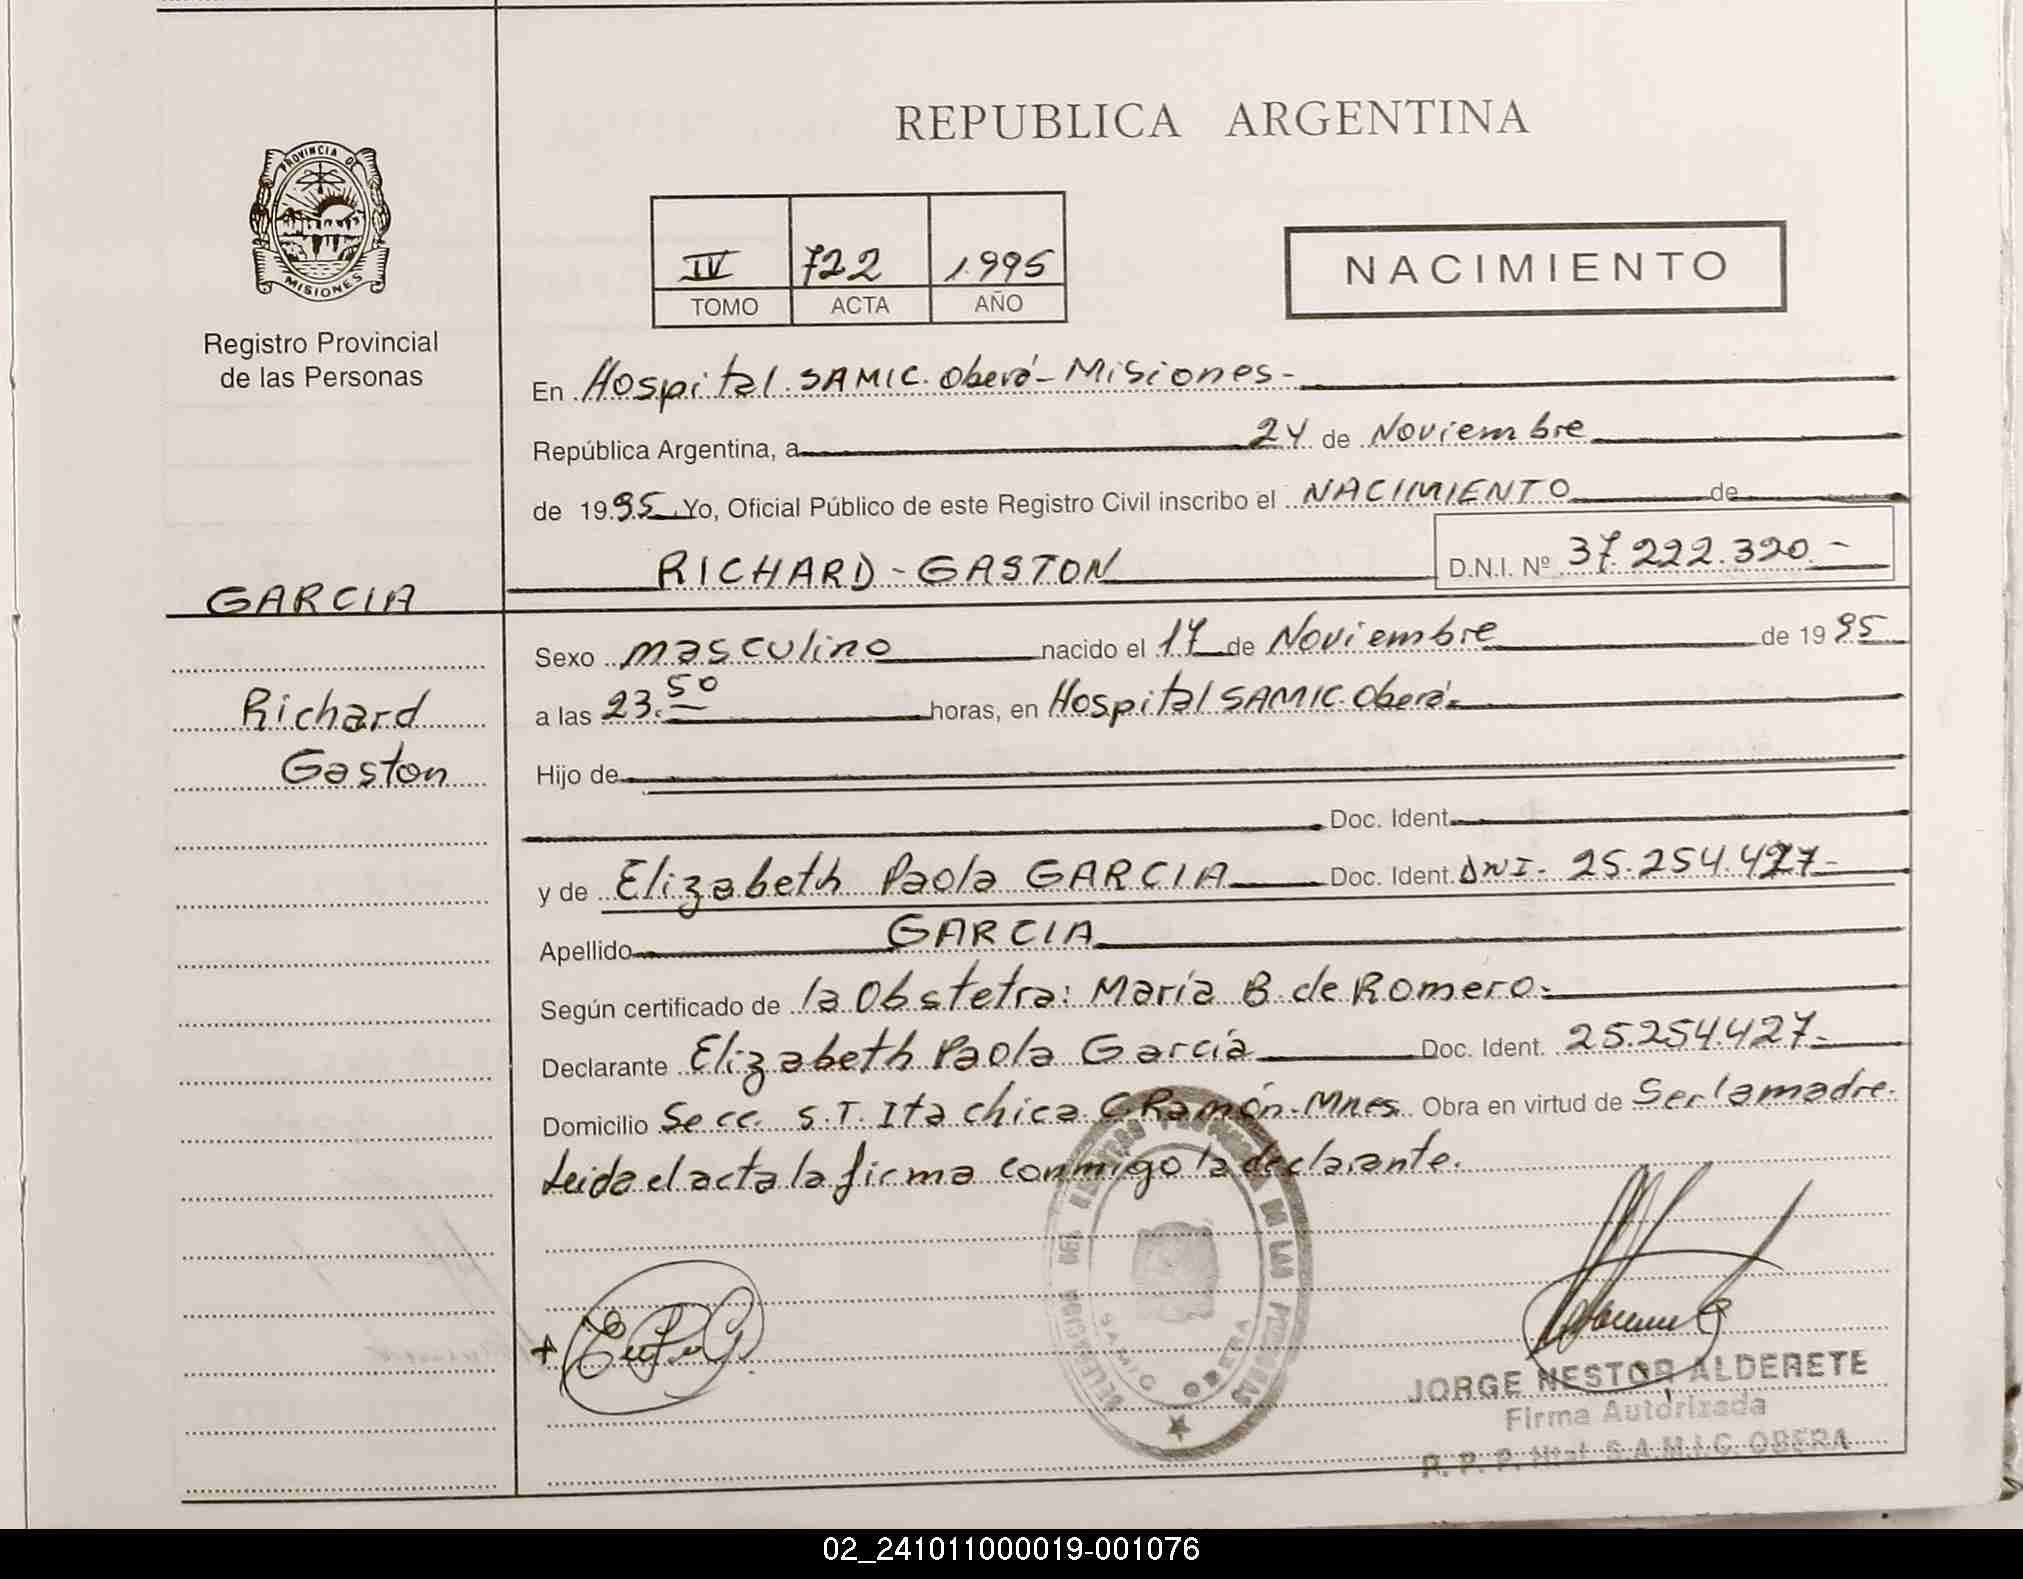 REPUBLICA ARGENTINA
PROVINCIA DE
MISIONES
Registro Provincial
de las Personas
IV 722 1.995
TOMO ACTA AÑO
NACIMIENTO
En Hospital SAMIC. Oberá - Misiones -
República Argentina, a 24 de Noviembre
de 1995 Yo, Oficial Público de este Registro Civil inscribo el NACIMIENTO de
RICHARD - GASTON D.N.I. Nº 37.222.320.-
GARCIA
Sexo masculino nacido el 17 de Noviembre de 1995
Richard
a las 23.50 horas, en Hospital SAMIC. Oberá.
Gaston
Hijo de
Doc. Ident.
y de Elizabeth Paola GARCIA Doc. Ident. DNI - 25.254.427-
Apellido GARCIA
Según certificado de la Obstetra: María B. de Romero.
Declarante Elizabeth Paola García Doc. Ident. 25.254.427-
Domicilio Secc. S.T. Ita chica C. Ramón - Mnes. Obra en virtud de Ser la madre.
Leida el acta la firma conmigo la declarante.
SAMIC OBERA
JORGE NESTOR ALDERETE
Firma Autorizada
R. P. P. Htal. S.A.M.I.C. OBERA
02_241011000019-001076